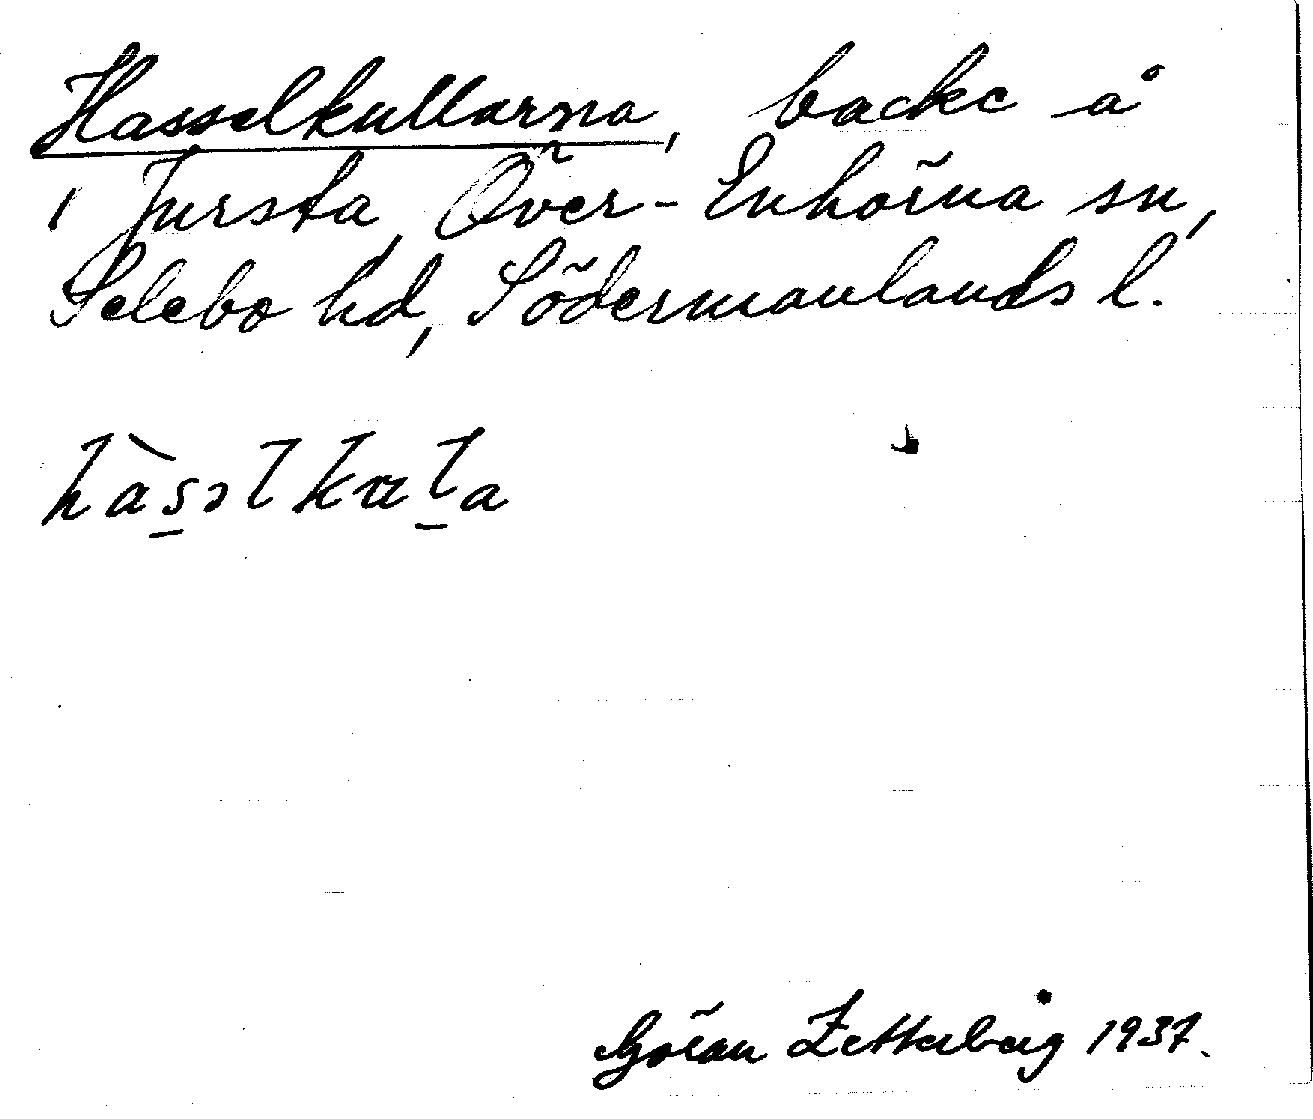 Hasselkullarna, backe å
i Jursta, Över-Enhörna sn,
Selebo hd, Södermanlands l.
Göran Zetterberg 1937.